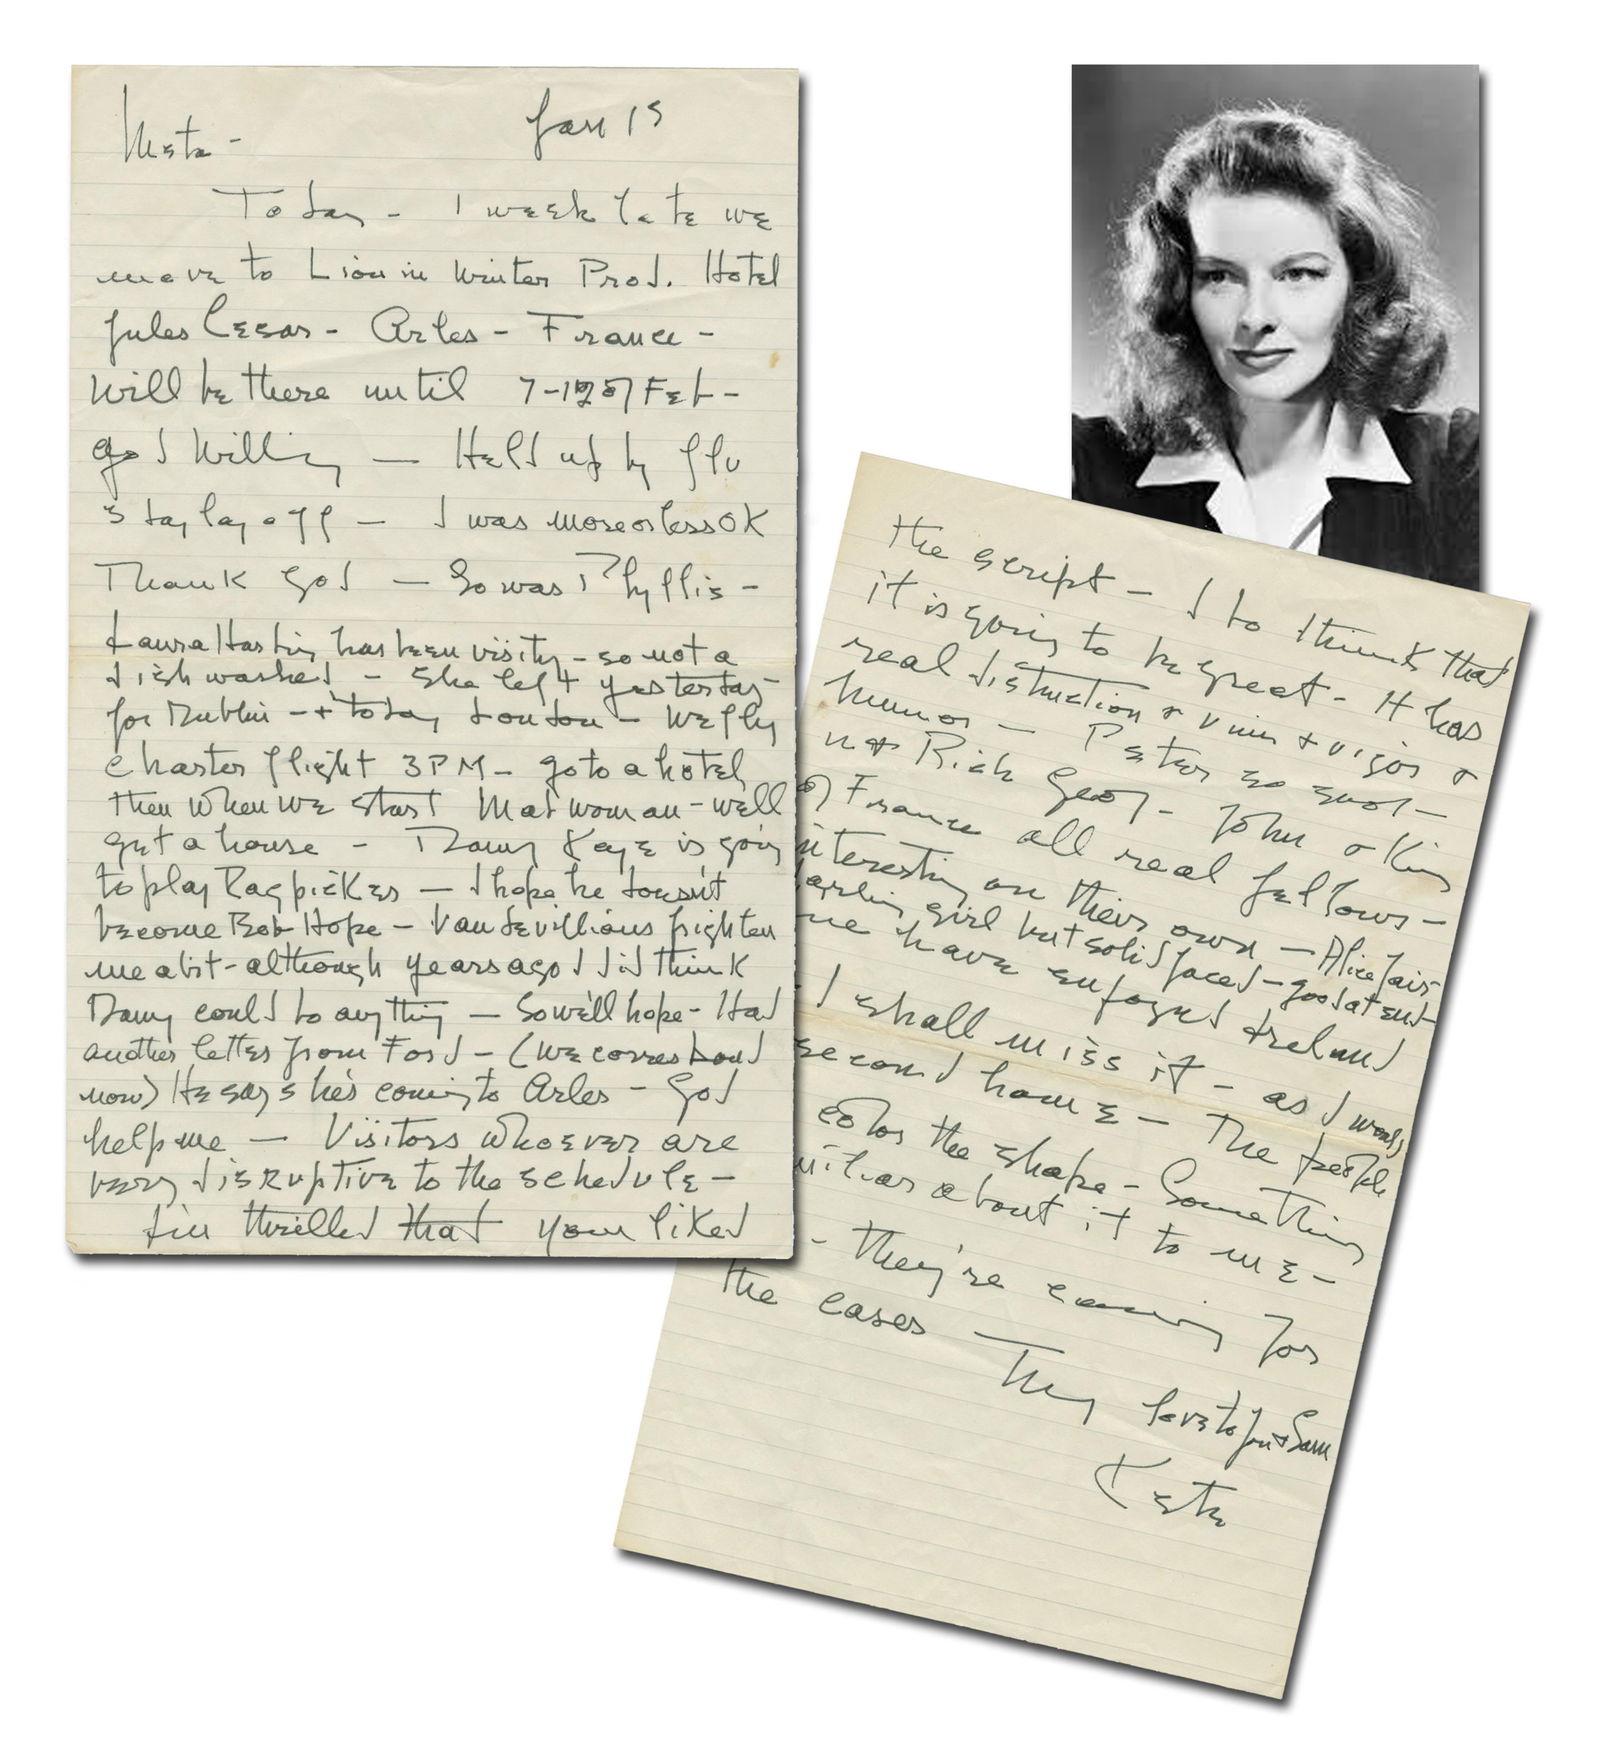 Meta - Jan 15
Today - 1 week late we
move to Lion in Winter Prod. Hotel
Jules Cesar - Arles - France -
Will be there until 7-12 of Feb -
God Willing — Held up by flu
5 day lay off — I was more or less OK
Thank God — So was Phyllis -
Laura Harding has been visiting - so not a
dish washed - She left yesterday
for Dublin - + today London - We fly
charter flight 3 PM - go to a hotel
then when we start Mad woman - we'll
get a house - Danny Kaye is going
to play Ragpicker — I hope he doesn't
become Bob Hope - Vaudevillians frighten
me a bit - although years ago I did think
Danny could do anything — So we'll hope - Had
another letter from Ford - (we correspond
now) He says he's coming to Arles - God
help me — Visitors whoever are
very disruptive to the schedule -
I'm thrilled that you liked
the script - I do think that
it is going to be great - It has
real distinction & vim & vigor &
humor - Peter so
Rich Geof - John & King
of France all real fellows -
interesting on their own - Alice fair
darling girl but solid faced - good at end
have enjoyed Ireland
I shall miss it - as I would
second home - The people
color the shape - Something
about it to me -
- they're coming for
the cases —
My love to you & Sam
Kate